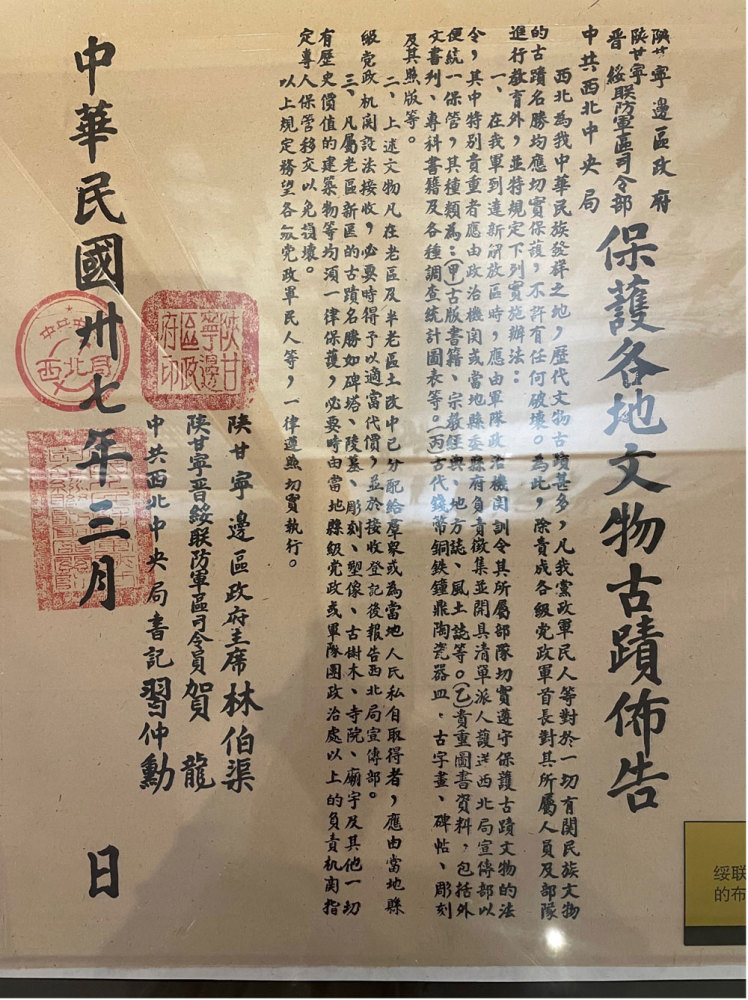 陝甘寧邊區政府
陝甘寧晉綏联防軍區司令部
中共西北中央局
保護各地文物古蹟佈告
西北為我中華民族發祥之地，歷代文物古蹟甚多，凡我黨政軍民人等對於一切有関民族文物
的古蹟名勝均應切實保護，不許有任何破壞。為此，除責成各級党政軍首長對其所屬人員及部隊
進行教育外，並特規定下列實施辦法：
一、在我軍到達新解放區時，應由軍隊政治機関訓令其所屬部隊切實遵守保護古蹟文物的法
令，其中特别貴重者應由政治機関或當地縣委縣府負責徵集並開具清單派人護送西北局宣傳部以
便統一保管，其種類為：(甲)古版書籍、宗教経典、地方誌、風土誌等。(乙)貴重圖書資料，包括外
文書刋、專科書籍及各種調查統計圖表等。(丙)古代錢幣銅鉄鐘鼎陶瓷器皿、古字畫、碑帖、彫刻
及其照版等。
二、上述文物凡在老區及半老區土改中已分配給羣衆或為當地人民私自取得者，應由當地縣
級党政机関設法接收，必要時得予以適當代價，並於接收登記後報告西北局宣傳部。
三、凡屬老區新區的古蹟名勝如碑塔、陵墓、彫刻、塑像、古樹木、寺院、廟宇及其他一切
有歷史價值的建築物等均須一律保護，必要時由當地縣級党政或軍隊團政治處以上的負責机関指
定專人保管移交以免損壞。
以上規定務望各級党政軍民人等，一律遵照切實執行。
陝甘寧邊區政府主席林伯渠
陝甘寧晉綏联防軍區司令員賀龍
中共西北中央局書記習仲勳
中華民國卅七年三月 日
陝甘寧邊區政府印
中共中央西北局
绥联
的布